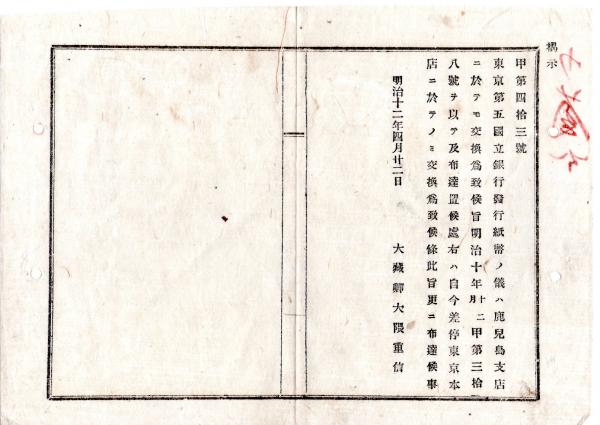 掲示
甲第四拾三號
東京第五國立銀行發行紙幣ノ儀ハ鹿兒島支店
ニ於テモ交換為致候旨明治十年十二月甲第三拾
八號ヲ以テ及布達置候處右ハ自今差停東京本
店ニ於テノミ交換為致候條此旨更ニ布達候事
明治十二年四月廿二日
大藏卿大隈重信